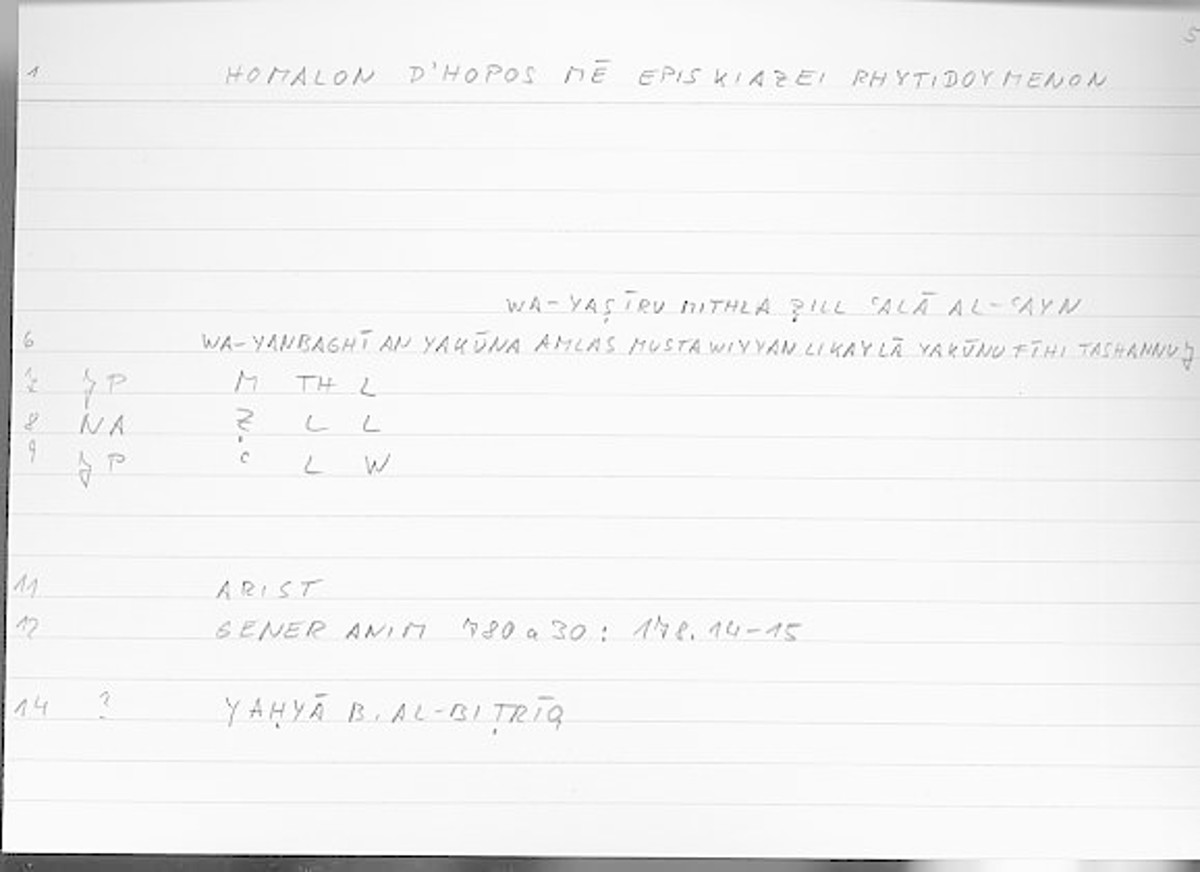 5
1 HOMALON D'HOPOS MĒ EPISKIAZEI RHYTIDOYMENON
WA-YAṢĪRU MITHLA ẒILL ʿALĀ AL-ʿAYN
6 WA-YANBAGHĪ AN YAKŪNA AMLAS MUSTAWIYYAN LIKAYLĀ YAKŪNU FĪHI TASHANNUJ
7 JP M TH L
8 NA Ẓ L L
9 JP ʿ L W
11 ARIST
12 GENER ANIM 780 a 30 : 178.14-15
14 ? YAḤYĀ B. AL-BIṬRĪQ